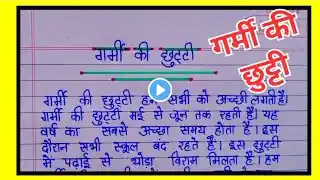 गर्मी की छुट्टी
गर्मी की छुट्टी
गर्मी की छुट्टी सभी को अच्छी लगती है।
गर्मी की छुट्टी मई से जून तक रहती है। यह
वर्ष का सबसे अच्छा समय होता है। इस
दौरान सभी स्कूल बंद रहते है। इस छुट्टी
में पढ़ाई से थोड़ा विराम मिलता है। हम